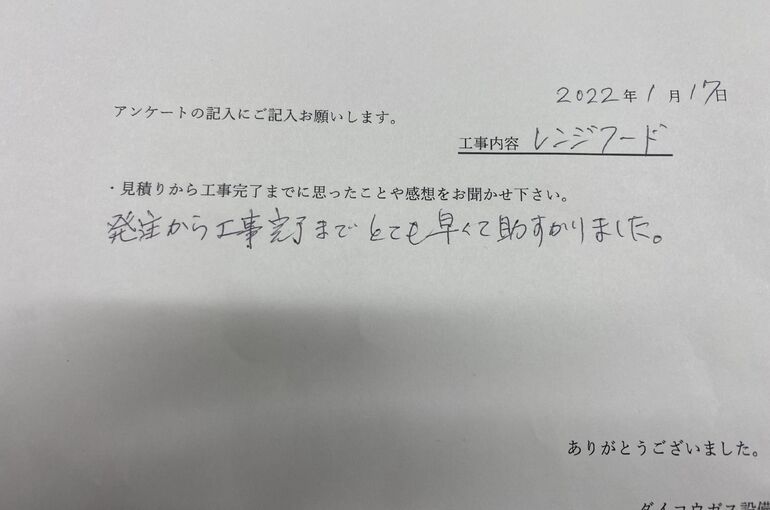 2022年1月17日
アンケートの記入にご記入お願いします。
工事内容 レンジフード
・見積りから工事完了までに思ったことや感想をお聞かせ下さい。
発注から工事完了までとても早くて助すかりました。
ありがとうございました。
ダイコウガス設備